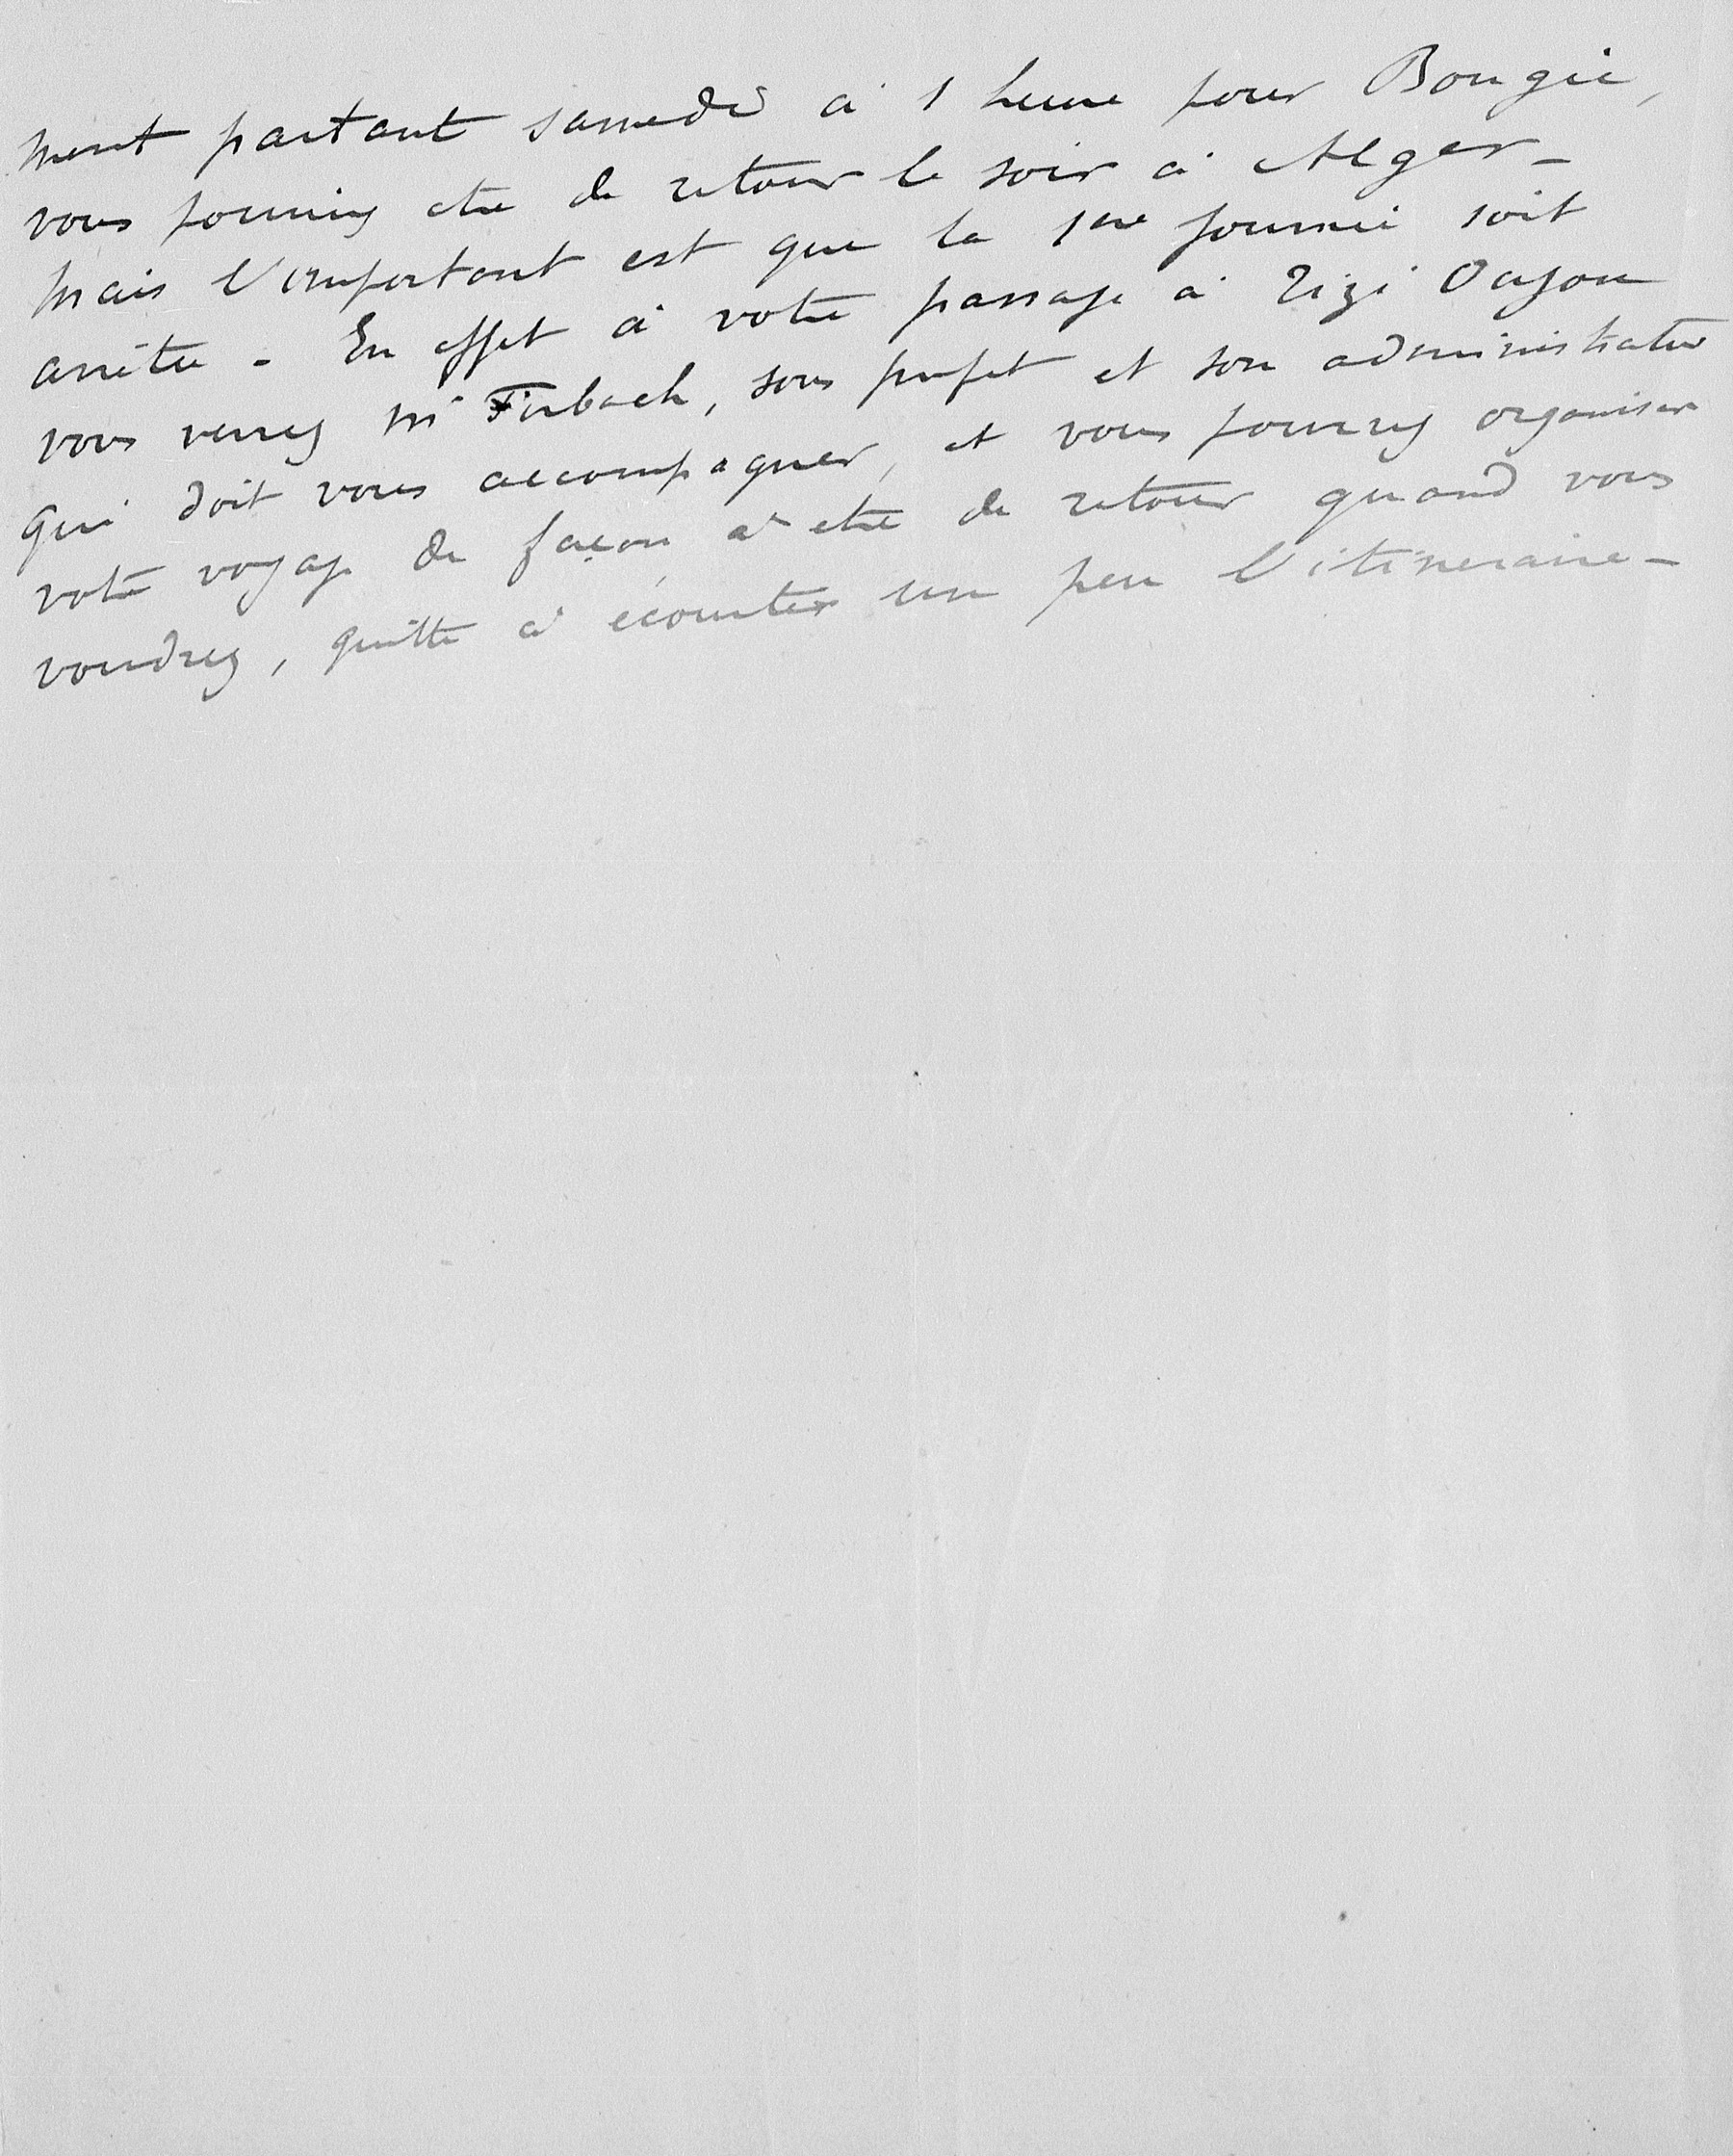 ment partant samedi à 1 heure pour Bougie,
vous pourriez etre de retour le soir à Alger -
Mais l'important est que la 1ere journée soit
arrêtée - En effet à votre passage à Tizi Ouzou
vous verrez Mr Firbach, sous préfet et son administrateur
qui doit vous accompagner, et vous pourrez organiser
votre voyage de façon à etre de retour quand vous
voudrez, quitte à écourter un peu l'itinéraire -